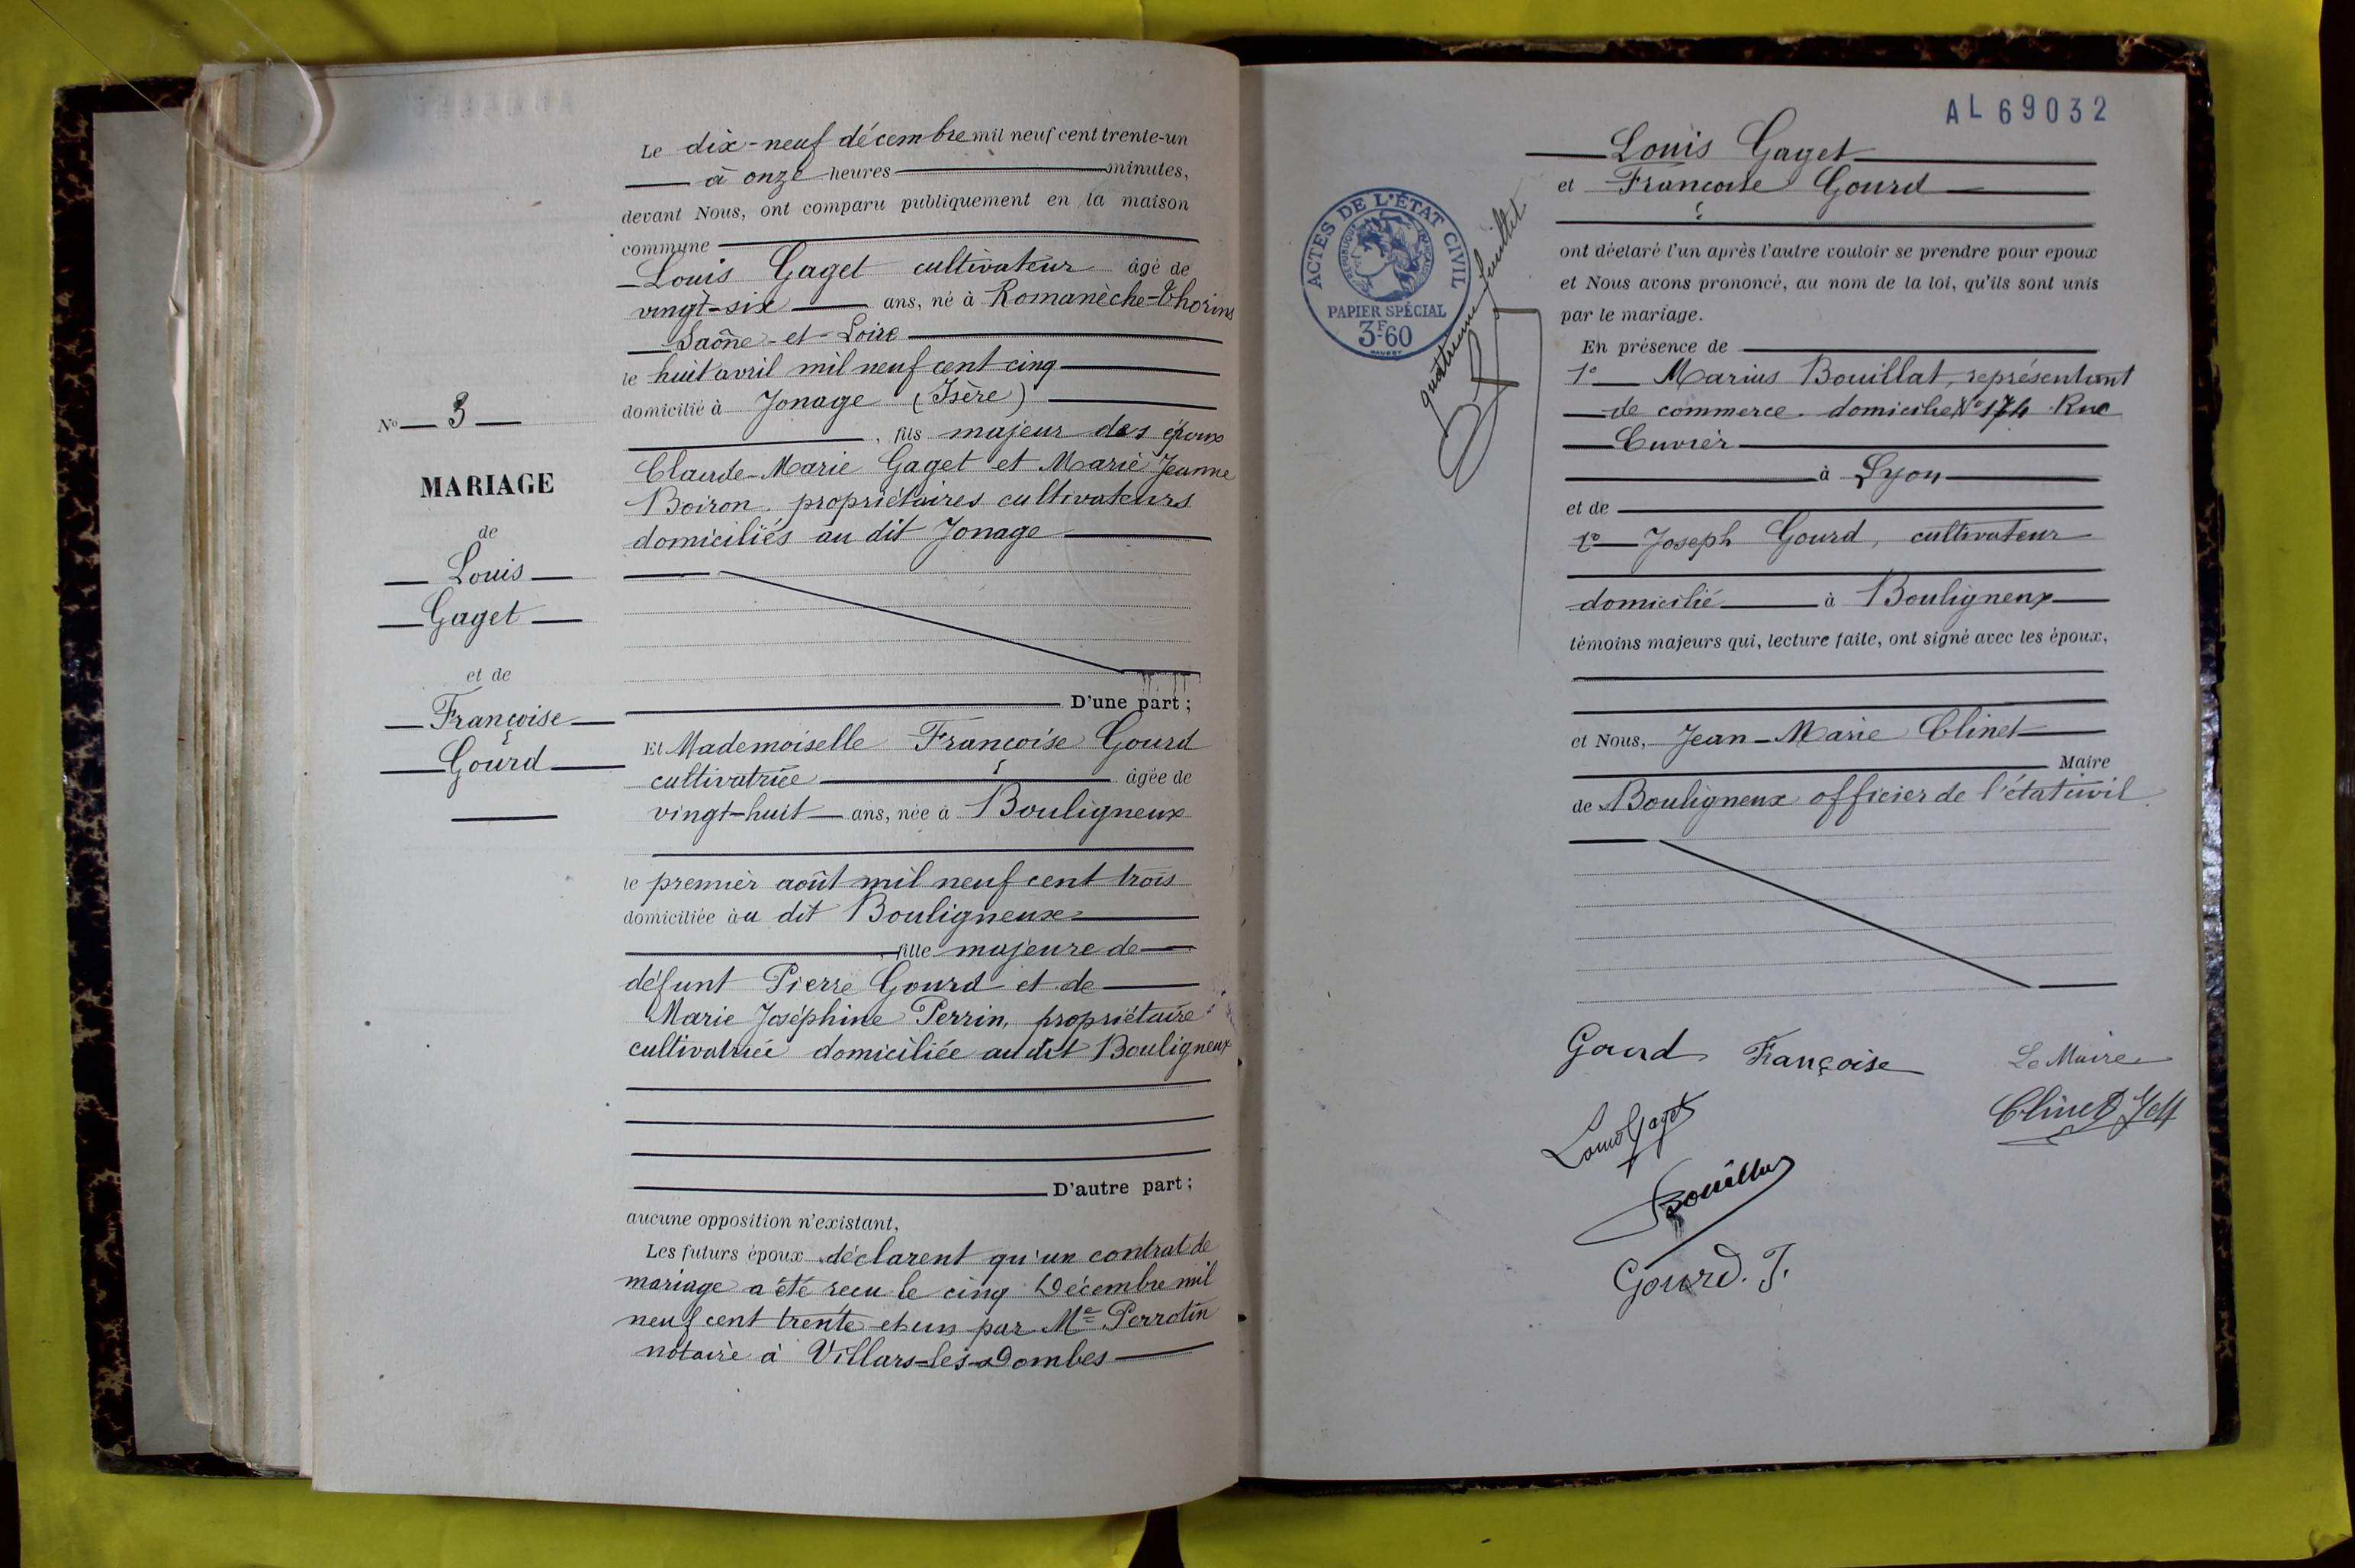 Le dix-neuf décembre mil neuf cent trente-un
à onze heures minutes,
devant Nous, ont comparu publiquement en la maison
commune
Louis Gaget cultivateur âgé de
vingt-six ans, né à Romanèche-Thorins
Saône-et-Loire
le huit avril mil neuf cent cinq
domicilié à Jonage (Isère)
, fils majeur des époux
Claude-Marie Gaget et Marie Jeanne
Boiron, propriétaires cultivateurs
domiciliés au dit Jonage
D'une part ;
Et Mademoiselle Françoise Gourd
cultivatrice âgée de
vingt-huit ans, née à Bouligneux
le premier août mil neuf cent trois
domiciliée àu dit Bouligneux
, fille majeure de
défunt Pierre Gourd et de
Marie Joséphine Perrin, propriétaire
cultivatrice domiciliée au dit Bouligneux
D'autre part ;
aucune opposition n'existant,
Les futurs époux déclarent qu'un contrat de
mariage a été reçu le cinq Décembre mil
neuf cent trente et un par Me Perrotin
notaire à Villars-les-Dombes
No 3
MARIAGE
de
Louis
Gaget
et de
Françoise
Gourd
AL 69032
Louis Gaget
et Françoise Gourd
ont déclaré l'un après l'autre vouloir se prendre pour epoux
et Nous avons prononcé, au nom de la loi, qu'ils sont unis
par le mariage.
En présence de
1o Marius Bouillat, représentant
de commerce domicilié No 174 Rue
Cuvier
à Lyon
et de
2o Joseph Gourd, cultivateur
domicilié à Bouligneux
témoins majeurs qui, lecture faite, ont signé avec les époux,
et Nous, Jean-Marie Clinet
Maire
de Bouligneux officier de l'état civil
Gourd Françoise
Le Maire
Clinet JM
Louis Gaget
Bouillat
Gourd. J.
ACTES DE L'ÉTAT CIVIL
RÉPUBLIQUE FRANÇAISE
PAPIER SPÉCIAL
3F60
quatrième feuillet